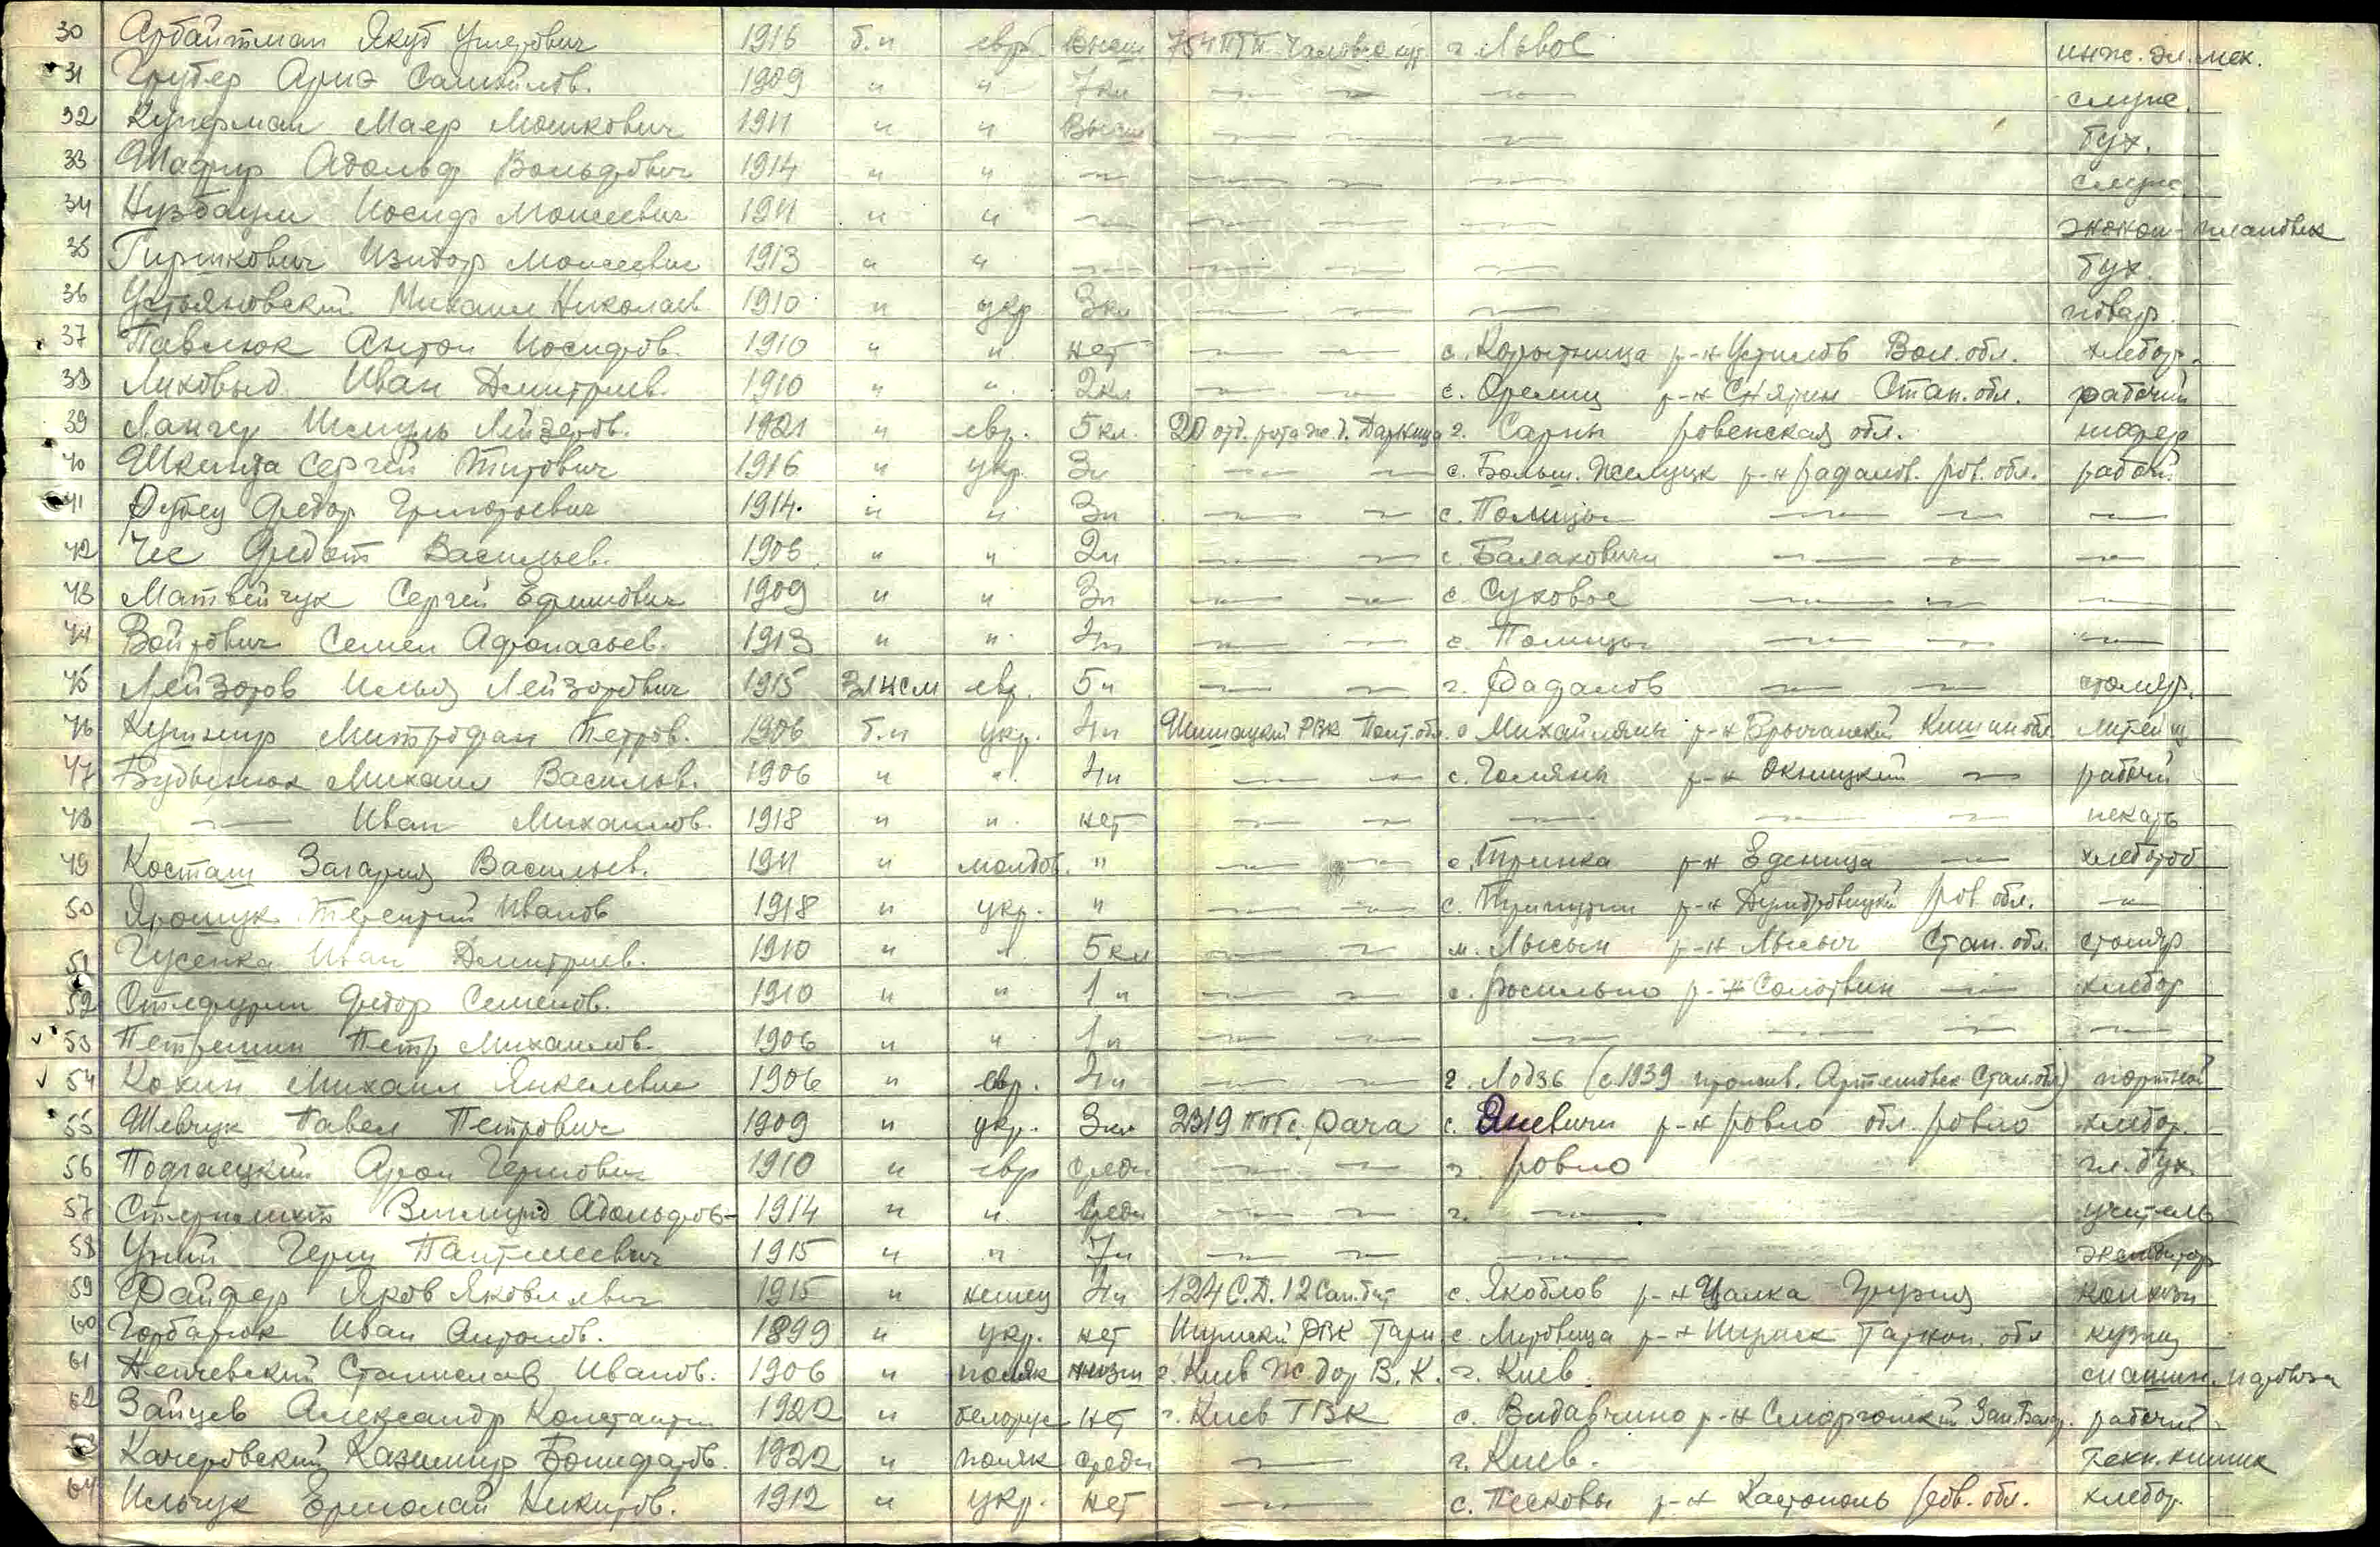 30 Арбайтман Якуб Ушерович 1916 б.п евр. Высш. 754 ПТП г. Львов инж. эл. мех.
31 Грубер Ариэ Самойлов. 1909 " " 7 кл — — — служ.
32 Куперман Маер Мошкович 1911 " " Высш — — — бух.
33 Шафир Адольф Вольфович 1914 " " — — — — служ.
34 Нузбаум Иосиф Моисеевич 1911 " " — — — — эконом-плановик
35 Гиршкович Изидор Моисеевич 1913 " " — — — — бух.
36 Устьяновский Михаил Николаев 1910 " укр 3 кл — — — повар.
37 Павлюк Антон Иосифов. 1910 " " нет — — с. Копытница р-н Устилов Вол. обл. хлебор.
38 Лиховыд Иван Дмитриев. 1910 " " 2 кл — — с. Орелец р-н Снятин Стан. обл. рабочий
39 Лангер Шмуль Лейзеров. 1921 " евр. 5 кл. 20 отд. рота ж.д. Дарница г. Сарны Ровенская обл. шофер
40 Шкента Сергей Титович 1916 " укр. 3 " — — с. Больш. Желуцк р-н Рафалов. Ров. обл. рабоч.
41 Дубец Федор Григорьевич 1914 " " 3 " — — с. Полицы — — —
42 Чес Федот Васильев. 1906 " " 2 " — — с. Балаховичи — — —
43 Матвейчук Сергей Ефимович 1909 " " 3 " — — с. Суховое — — —
44 Войтович Семен Афонасьев. 1913 " " 4 " — — с. Полицы — — —
45 Лейзоров Илья Лейзорович 1915 ВЛКСМ евр. 5 " — — г. Рафалов — — столяр.
46 Кушнир Митрофан Петров. 1906 б.п укр. 4 " Шишацкий РВК Полт. обл. с Михайляны р-н Бричанский Кишин обл. литейщ
47 Будынюк Михаил Васильев. 1906 " " 4 " — — с. Голяны р-н Окницкий — рабочий
48 — Иван Михайлов. 1918 " " нет — — — — — пекарь
49 Косташ Захария Васильев. 1911 " молдов. " — — с. Тринка р-н Еденица — хлебороб
50 Ярошук Терентий Иванов 1918 " укр. " — — с. р-н Домбровицкий Ров. обл. —
51 Гусенка Иван Дмитриев. 1910 " " 5 кл — — м. Лысын р-н Лысыч Стан. обл. столяр
52 Стефурин Федор Семенов. 1910 " " 1 " — — с. Росильно р-н Солотвин — хлебор
53 Петришин Петр Михайлов. 1906 " " 1 " — — — — — —
54 Кохин Михаил Янкелевич 1906 " евр. 4 " — — г. Лодзь (с 1939 прожив. Артемовск Стал. обл) портной
55 Шевчук Павел Петрович 1909 " укр. 3 кл 2319 ППС. Рача с. Яневичи р-н Ровно обл. Ровно хлебор.
56 Подгаецкий Арон Герцович 1910 " евр средн — — г. Ровно гл. бух.
57 Зигмунд Адольфов- 1914 " " средн — — г. — учитель
58 Уний Герш Пантилеевич 1915 " " 7 " — — — экспедитор
59 Файфер Яков Яковлевич 1915 " немец 4 " 124 С.Д. 12 Сан. бат с. Якоблов р-н Цалка Грузия колхозн
60 Горбатюк Иван Антонов. 1899 " укр. нет Шумский РВК Тарн. с. Митовица р-н Шумск Тарноп. обл кузнец
61 Станислав Иванов. 1906 " поляк низш г. Киев Ж. дор В.К. г. Киев машин. паровоза
62 Зайцев Александр Константин 1922 " белорус нет г. Киев ГВК с. Видавчино р-н Сморгонский Зап. Белор. рабочий
63 Качеровский Казимир Бонифатов. 1922 " поляк средн — г. Киев. техн. химик
64 Ильчук Ермолай Никитов. 1912 " укр. нет — с. Песковы р-н Костополь Ров. обл. хлебор.